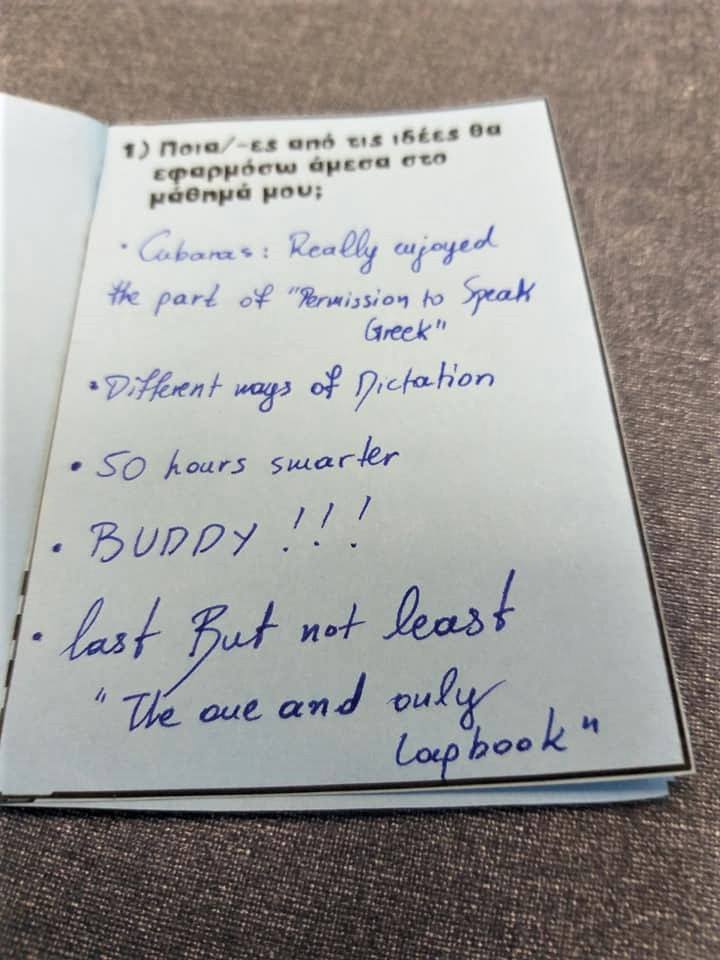 1) Ποια/-ες από τις ιδέες θα
εφαρμόσω άμεσα στο
μάθημά μου;
• Cubanas: Really enjoyed
the part of "Permission to Speak
Greek"
• Different ways of Dictation
• 50 hours smarter
• BUDDY !!!
• last But not least
"The one and only
lapbook"